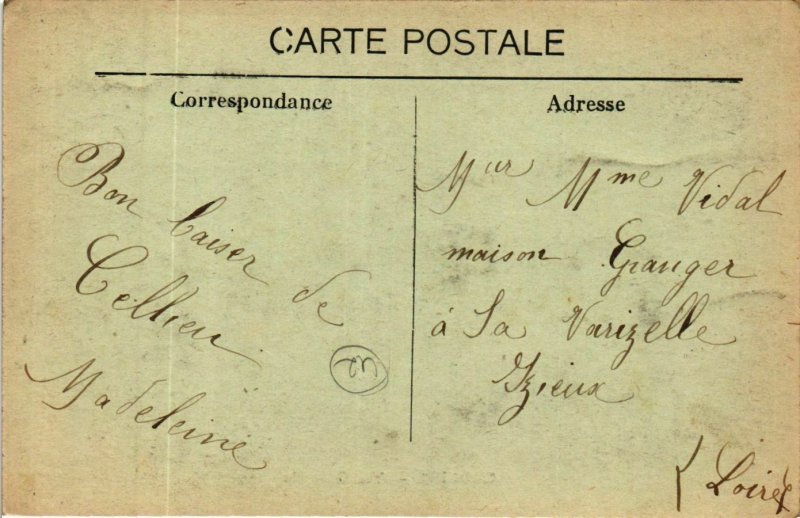 CARTE POSTALE
Correspondance
Bon baiser de
Cellieu
Madeleine
Adresse
Mur Mme Vidal
maison Granger
à La Varizelle
Izieux
(Loire)